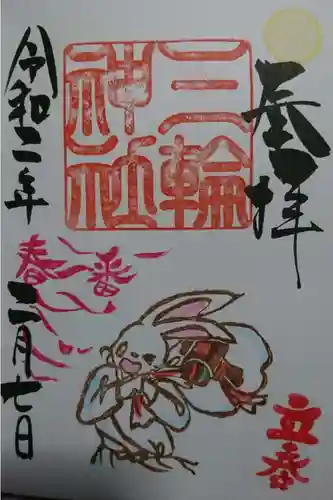 奉拝
三輪
神社
令和二年
二月七日
春一番
立春